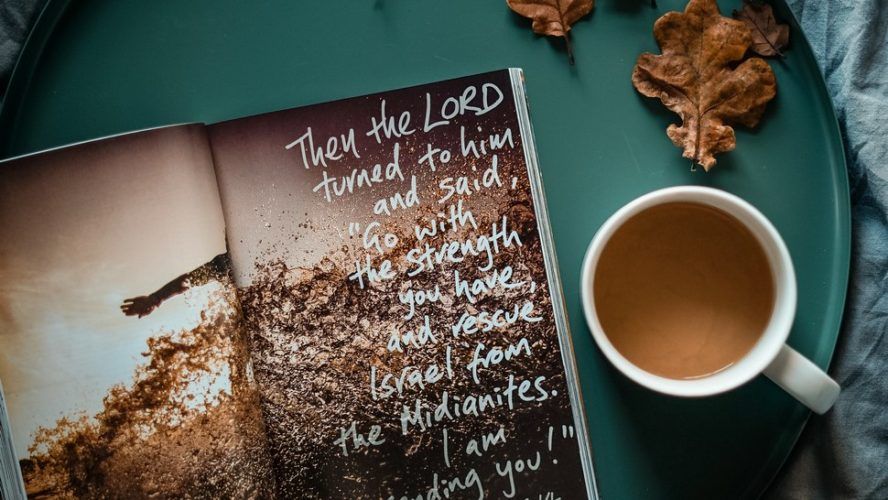 Then the LORD
turned to him
and said,
"Go with
the strength
you have,
and rescue
Israel from
the Midianites.
I am
you!"